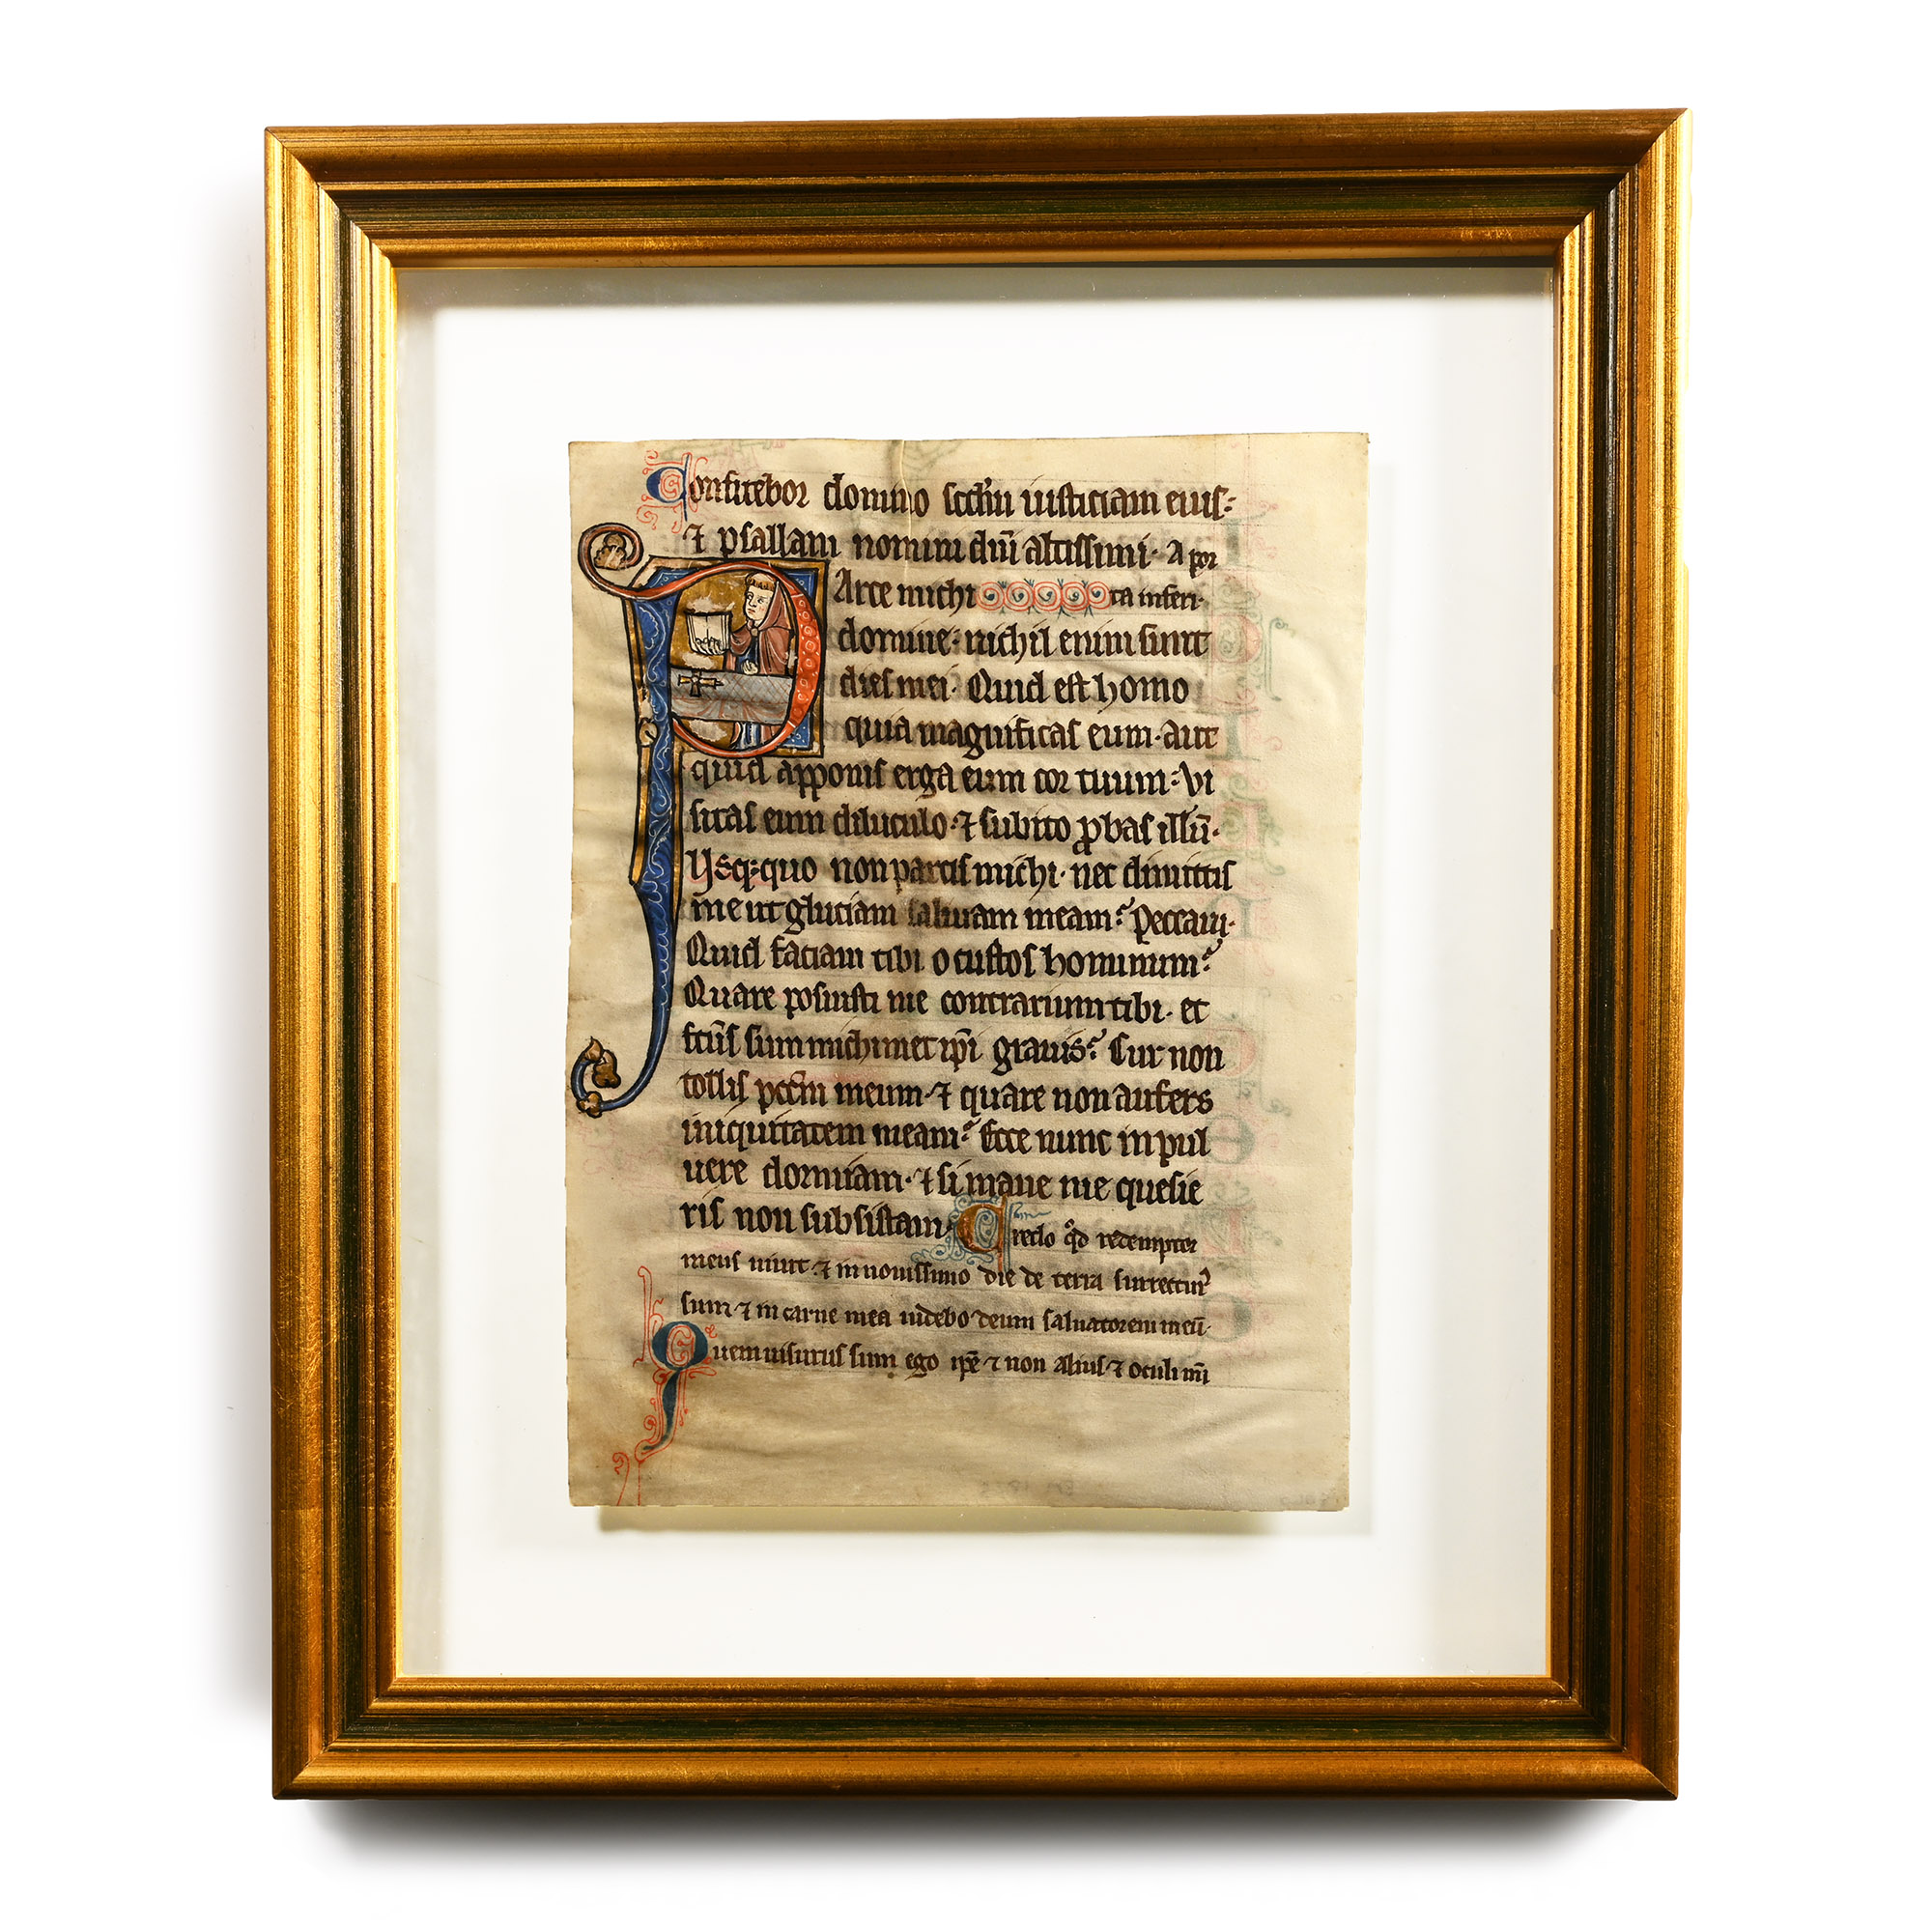 Confitebor domino scdm iusticiam eius:
⁊ psallam nomini dni altissimi. A por
PArce michi ta inferi.
domine: nichil enim sunt
dies mei. Quid est homo
quia magnificas eum. aut
quid apponis erga eum cor tuum: Vi
sitas eum diluculo. ⁊ subito probas illū.
Usq;quo non parcis michi. nec dimittis
me ut glutiam saliuam meam? Peccaui.
Quid faciam tibi o custos hominum?
Quare posuisti me contrarium tibi. et
fcūs sum michimet ip̄i grauis? Cur non
tollis pccm̄ meum. ⁊ quare non aufers
iniquitatem meam? Ecce nunc in pul
uere dormiam. ⁊ si mane me quesie
ris non subsistam. Credo qd redemptor
meus uiuit. ⁊ in nouissimo die de terra surrectur᾽
sum. ⁊ in carne mea uidebo deum saluatorem meū.
Quem uisurus sum ego ip̄e ⁊ non alius ⁊ oculi mī